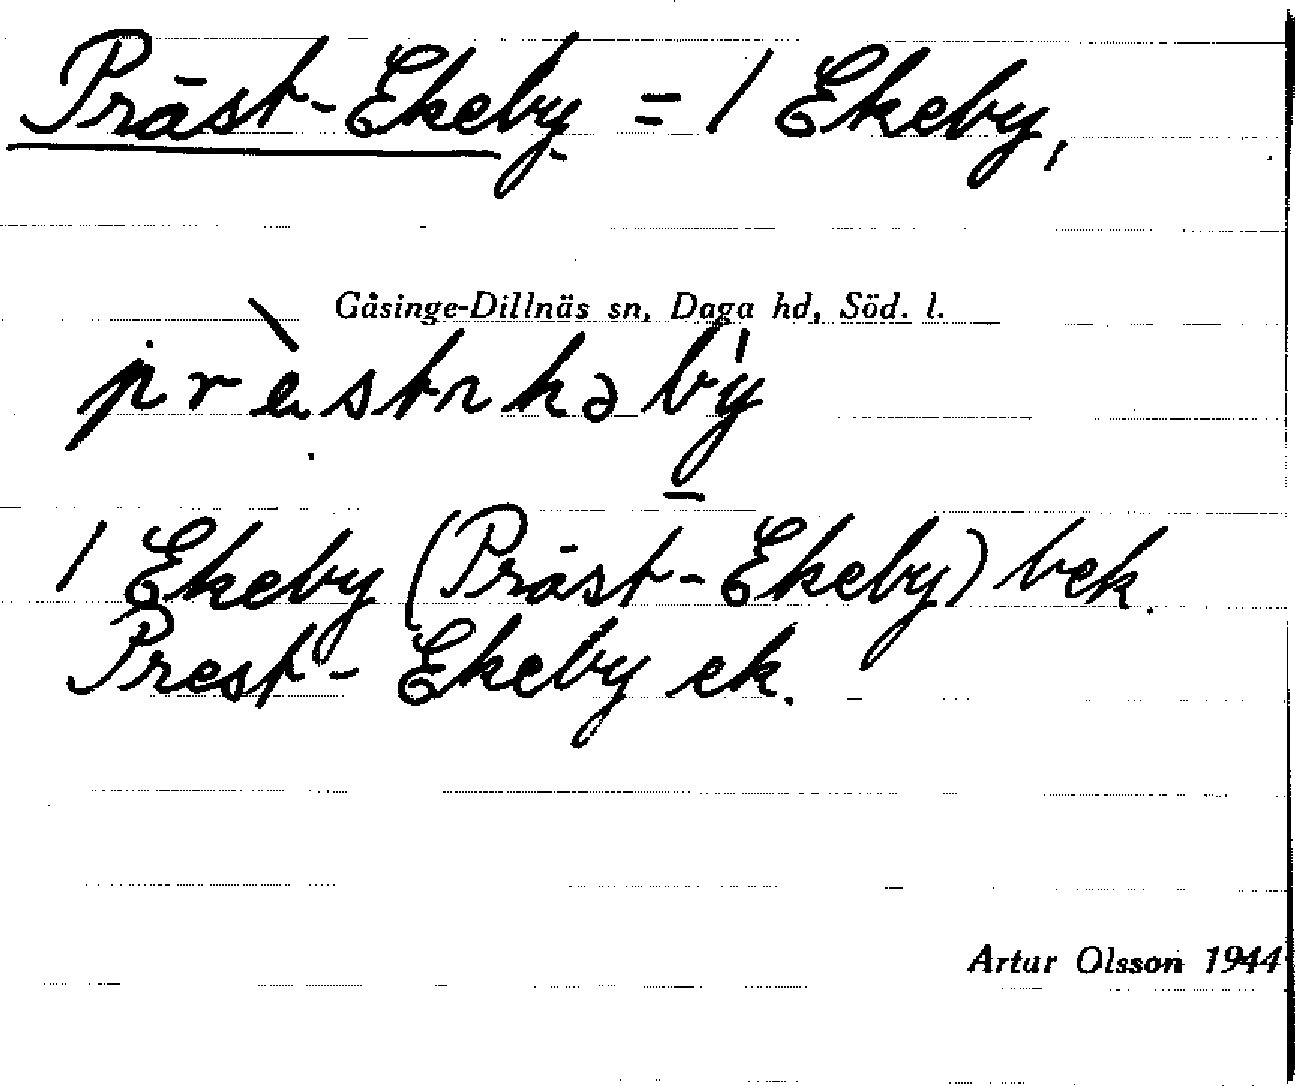 Präst-Ekeby = 1 Ekeby,
Gåsinge-Dillnäs sn, Daga hd, Söd. l.
1 Ekeby (Präst-Ekeby) bek.
Prest-Ekeby ek.
Artur Olsson 1944